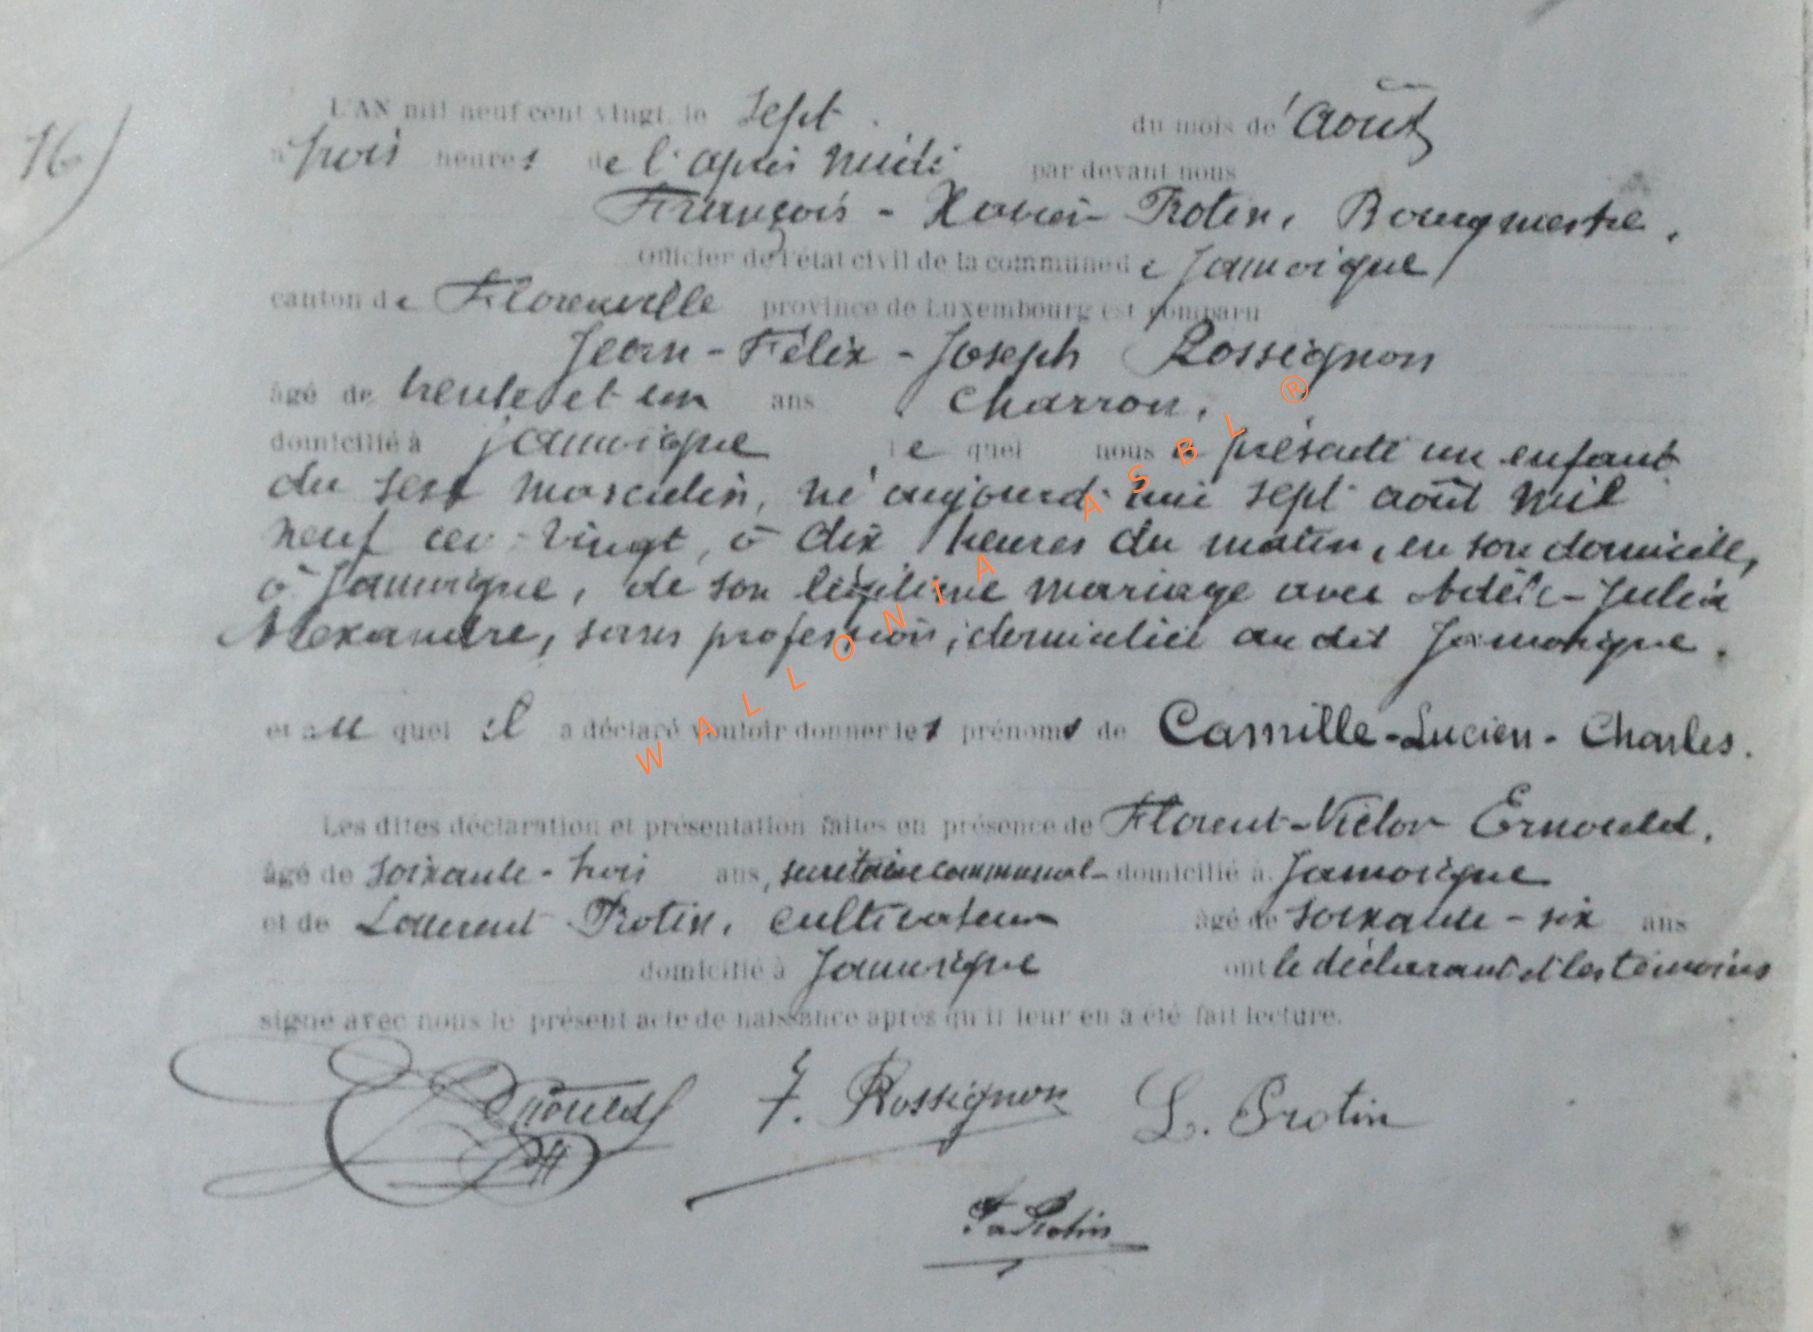 16)
L'AN mil neuf cent vingt, le sept du mois d'août
à trois heures de l'après midi par devant nous
François - Xavier Protin, Bourgmestre,
Officier de l'état civil de la commune de Jamoigne,
canton de Florenville province de Luxembourg est comparu
Jean - Félix - Joseph Rossignon
âgé de trente et un ans charron,
domicilié à Jamoigne le quel nous a présenté un enfant
du sexe masculin, né aujourd'hui sept août mil
neuf cent vingt, à dix heures du matin, en son domicile,
à Jamoigne, de son légitime mariage avec Adèle - Julia
Alexandre, sans profession, domiciliée au dit Jamoigne.
et au quel il a déclaré vouloir donner les prénoms de Camille - Lucien - Charles.
Les dites déclaration et présentation faites en présence de Florent - Victor Ernould,
âgé de soixante - trois ans, secrétaire communal domicilié à Jamoigne
et de Laurent Protin, cultivateur âgé de soixante - six ans
domicilié à Jamoigne ont le déclarant et les témoins
signé avec nous le présent acte de naissance après qu'il leur en a été fait lecture.
Ernould F. Rossignon L. Protin
F X Protin
WALLONIA ASBL ®